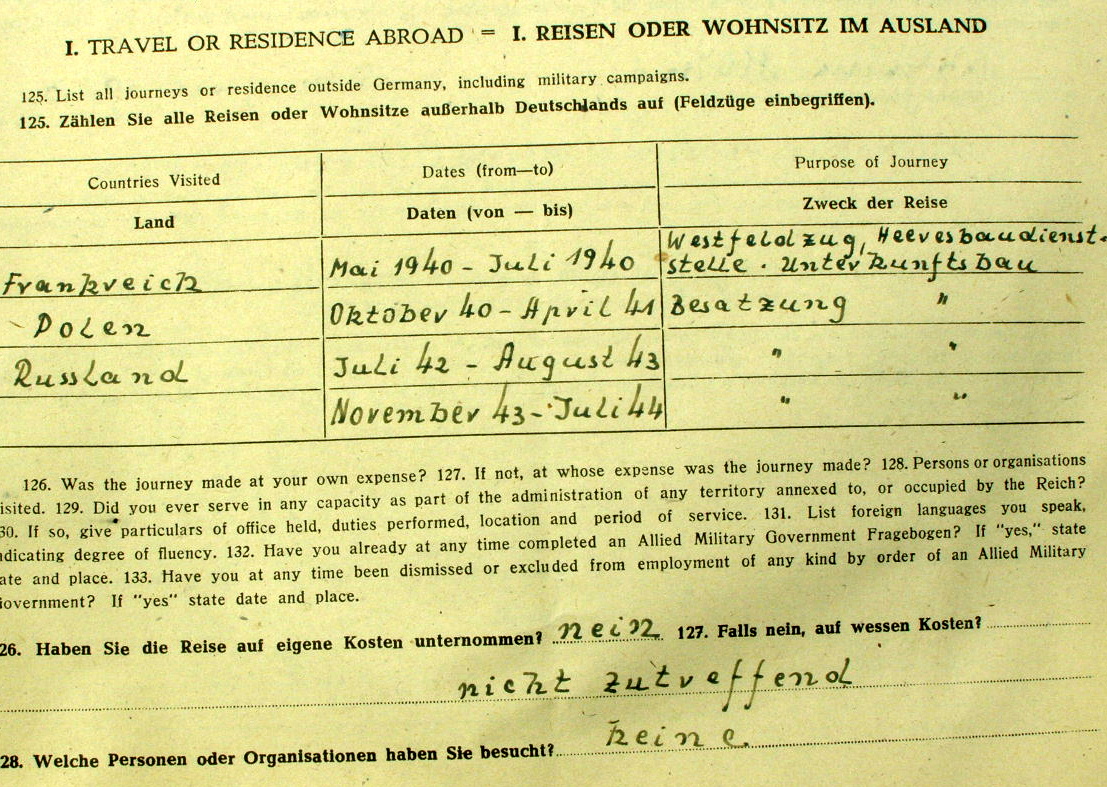 I. TRAVEL OR RESIDENCE ABROAD = I. REISEN ODER WOHNSITZ IM AUSLAND
125. List all journeys or residence outside Germany, including military campaigns.
125. Zählen Sie alle Reisen oder Wohnsitze außerhalb Deutschlands auf (Feldzüge einbegriffen).
Countries Visited Dates (from—to) Purpose of Journey
Land Daten (von — bis) Zweck der Reise
Frankreich Mai 1940 - Juli 1940 Westfeldzug, Heeresbaudienst-
stelle. Unterkunftsbau
Polen Oktober 40 - April 41 Besatzung "
Russland Juli 42 - August 43 " "
November 43 - Juli 44 " "
126. Was the journey made at your own expense? 127. If not, at whose expense was the journey made? 128. Persons or organisations
isited. 129. Did you ever serve in any capacity as part of the administration of any territory annexed to, or occupied by the Reich?
30. If so, give particulars of office held, duties performed, location and period of service. 131. List foreign languages you speak,
dicating degree of fluency. 132. Have you already at any time completed an Allied Military Government Fragebogen? If "yes," state
ate and place. 133. Have you at any time been dismissed or excluded from employment of any kind by order of an Allied Military
overnment? If "yes" state date and place.
26. Haben Sie die Reise auf eigene Kosten unternommen? nein 127. Falls nein, auf wessen Kosten?
nicht zutreffend
28. Welche Personen oder Organisationen haben Sie besucht? keine.